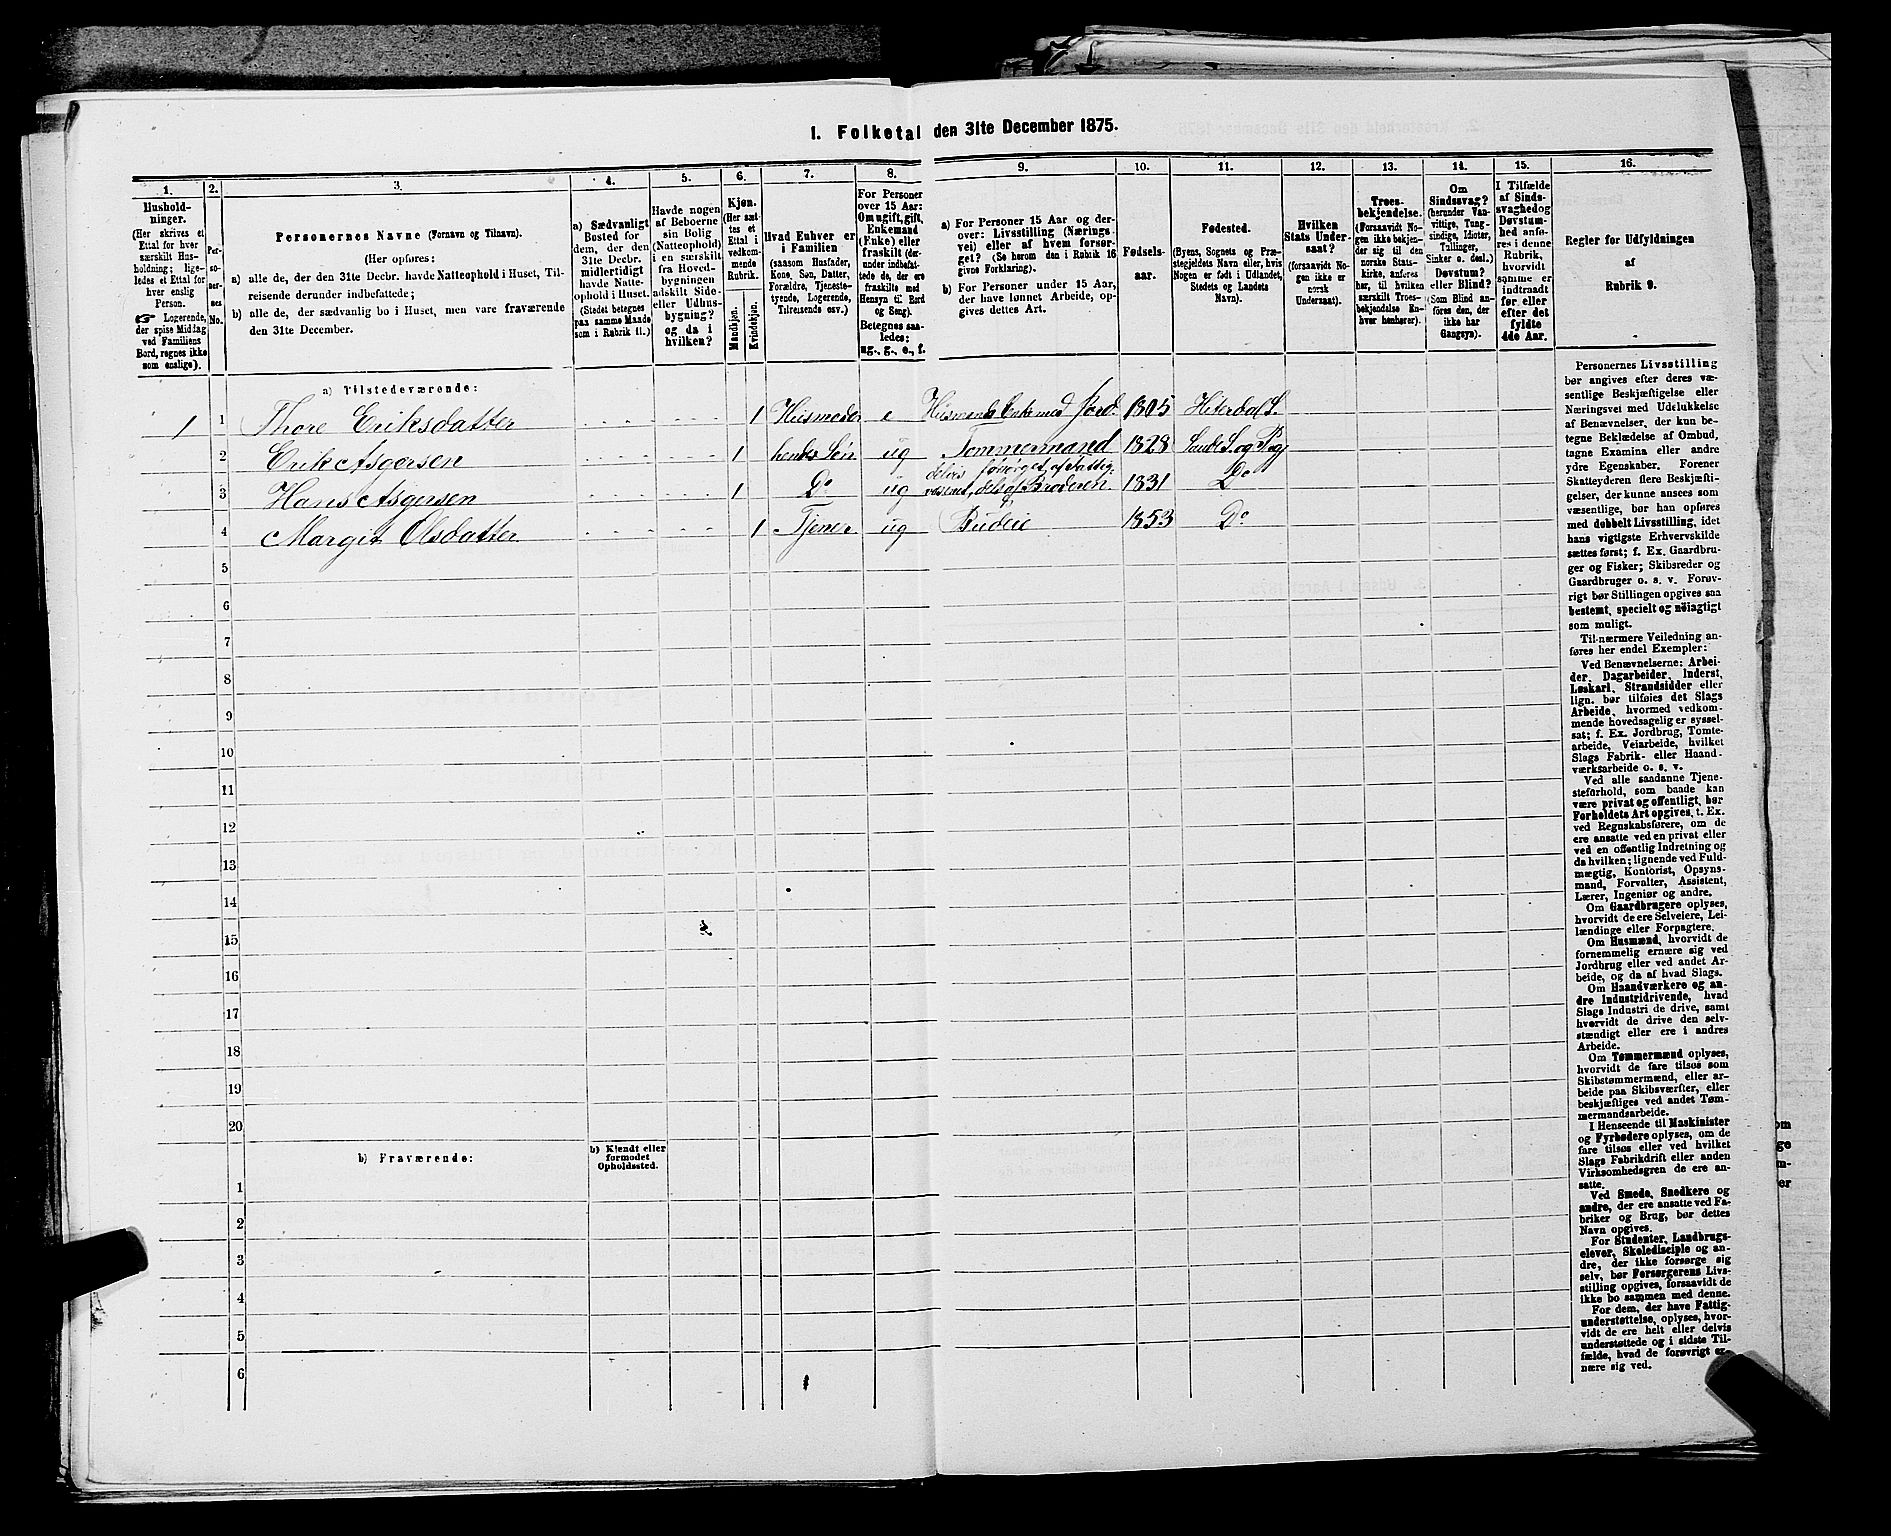 1. Folketal den 31te December 1875.
1.
2.
3.
4.
5.
6.
7.
8.
9.
10.
11.
12.
13.
14.
15.
16.
Hushold-
ninger.
(Her skrives et
Ettal for hver
særskilt Hus-
holdning; lige-
ledes et Ettal for
hver enslig
Person.
Logerende,
der spise Middag
ved Familiens
Bord, regnes ikke
som enslige).
Per-
so-
ner-
nes
No.
Personernes Navne (Fornavn og Tilnavn).
(Her opføres:
a) alle de, der den 31te Decbr. havde Natteophold i Huset, Til-
reisende derunder indbefattede;
b) alle de, der sædvanlig bo i Huset, men vare fraværende
den 31te December.
a) Sædvanligt
Bosted for
dem, der den
31te Decbr.
midlertidigt
havde Natte-
ophold i Huset.
(Stedet betegnes
paa samme Maade
som i Rubrik 11.)
Havde nogen
af Beboerne
sin Bolig
(Natteophold)
i en særskilt
fra Hoved-
bygningen
adskilt Side-
eller Udhus-
bygning?
og da i
hvilken?
Kjøn.
(Her sæt-
tes et
Ettal i
vedkom-
mende
Rubrik.
Mandkjøn.
Kvindekjøn.
Hvad Enhver er
i Familien
(saasom Husfader,
Kone, Søn, Datter,
Forældre, Tjeneste-
tyende, Logerende,
Tilreisende osv.)
For Personer
over 15 Aar:
Om ugift, gift,
Enkemand
(Enke) eller
fraskilt (der-
under indbefat-
tede de, der ere
fraskilte med
Hensyn til Bord
og Seng).
Betegnes saa-
ledes:
ug., g., e., f.
a) For Personer 15 Aar og der-
over: Livsstilling (Nærings-
vei) eller af hvem forsør-
get? (Se herom den i Rubrik 16
givne Forklaring).
b) For Personer under 15 Aar,
der have lønnet Arbeide, op-
gives dettes Art.
Fødsels-
aar.
Fødested.
(Byens, Sognets og Præ-
stegjeldets Navn eller, hvis
Nogen er født i Udlandet,
Stedets og Landets
Navn).
Hvilken
Stats Under-
saat?
(forsaavidt No-
gen ikke er
norsk
Undersaat).
Troes-
bekjendelse.
(Forsaavidt No-
gen ikke bekjen-
der sig til den
norske Stats-
kirke, anføres
her, til hvilken
særskilt Troes-
bekjendelse En-
hver henhører).
Om
Sindssvag?
(herunder Van-
vittige, Tung-
sindige, Idioter,
Tullinger,
Sinker o. desl.)
Døvstum?
eller Blind?
(Som Blind an-
føres den, der
ikke har
Gangsyn).
I Tilfælde
af Sinds-
svaghed og
Døvstum-
hed anfø-
res i denne
Rubrik,
hvorvidt
samme er
indtraadt
før eller
efter det
fyldte
4de Aar.
Regler for Udfyldningen
af
Rubrik 9.
a) Tilstedeværende:
1 1 Thore Eriksdatter 1 Husmoder e Husmands Enke med Jord 1805 Hiterdal S.
2 Erik Asgersen 1 hendes Søn ug Tømmermand 1828 Saude S. og Pgj
3 Hans Asgersen 1 Do ug delvis forsørget af Fattig
væsenet, dels af Broderen. 1831 Do
4 Margit Olsdatter 1 Tjener ug Budeie 1853 Do
5
6
7
8
9
10
11
12
13
14
15
16
17
18
19
20
b) Fraværende:
b) Kjendt eller
formodet
Opholdssted.
1
2
3
4
5
6
Personernes Livsstilling
bør angives efter deres væ-
sentlige Beskjæftigelse eller
Næringsvei med Udelukkelse
af Benævnelser, der kun be-
tegne Beklædelse af Ombud,
tagne Examina eller andre
ydre Egenskaber. Forener
Skatteyderen flere Beskjæfti-
gelser, der kunne ansees som
væsentlige, bør han opføres
med dobbelt Livsstilling, idet
hans vigtigste Erhvervskilde
sættes først; f. Ex. Gaardbru-
ger og Fisker; Skibsreder og
Gaardbruger o. s. v. Forøv-
rigt bør Stillingen opgives saa
bestemt, specielt og nøiagtigt
som muligt.
Til nærmere Veiledning an-
føres her endel Exempler:
Ved Benævnelserne: Arbei-
der, Dagarbeider, Inderst,
Løskarl, Strandsidder eller
lign. bør tilføies det Slags
Arbeide, hvormed vedkom-
mende hovedsagelig er syssel-
sat; f. Ex. Jordbrug, Tomte-
arbeide, Veiarbeide, hvilket
Slags Fabrik- eller Haand-
værksarbeide o. s. v.
Ved alle saadanne Tjene-
steforhold, som baade kan
være privat og offentligt, bør
Forholdets Art opgives, t. Ex.
ved Regnskabsførere, om de
ere ansatte ved en privat eller
ved en offentlig Indretning og
da hvilken; lignende ved Fuld-
mægtig, Kontorist, Opsyns-
mand, Forvalter, Assistent,
Lærer, Ingeniør og andre.
Om Gaardbrugere oplyses,
hvorvidt de ere Selveiere, Lei-
lændinge eller Forpagtere.
Om Husmænd, hvorvidt de
fornemmelig ernære sig ved
Jordbrug eller ved andet Ar-
beide, og da af hvad Slags.
Om Haandværkere og an-
dre Industridrivende, hvad
Slags Industri de drive, samt
hvorvidt de drive den selv-
stændigt eller ere i andres
Arbeide.
Om Tømmermænd oplyses,
hvorvidt de fare tilsøs som
Skibstømmermænd, eller ar-
beide paa Skibsværfter, eller
beskjæftiges ved andet Tøm-
mermandsarbeide.
I Henseende til Maskinister
og Fyrbødere oplyses, om de
fare tilsøs eller ved hvilket
Slags Fabrikdrift eller anden
Virksomhedsgren de ere an-
satte.
Ved Smede, Snedkere og
andre, der ere ansatte ved Fa-
briker og Brug, bør dettes
Navn opgives.
For Studenter, Landbrugs-
elever, Skoledisciple og an-
dre, der ikke forsørge sig
selv, bør Forsørgerens Livs-
stilling opgives, forsaavidt de
ikke bo sammen med denne.
For dem, der have Fattig-
understøttelse, oplyses, hvor-
vidt de ere helt eller delvis
understøttede og i sidste Til-
fælde, hvad de forøvrigt er-
nære sig ved.